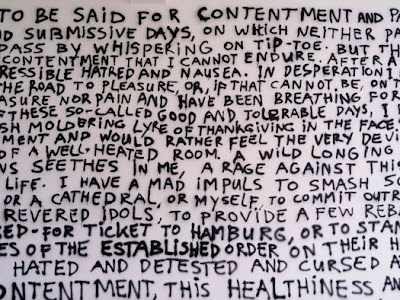 TO BE SAID FOR CONTENTMENT AND PA
D SUBMISSIVE DAYS, ON WHICH NEITHER PA
PASS BY WHISPERING ON TIP-TOE. BUT TH
CONTENTMENT THAT I CANNOT ENDURE. AFTER A
RESSIBLE HATRED AND NAUSEA. IN DESPERATION I
THE ROAD TO PLEASURE, OR, IF THAT CANNOT BE, ON T
ASURE NOR PAIN AND HAVE BEEN BREATHING FOR
THESE SO-CALLED GOOD AND TOLERABLE DAYS, I
SH MOLDERING LYRE OF THANKSGIVING IN THE FACE
MENT AND WOULD RATHER FEEL THE VERY DEVI
OF A WELL-HEATED ROOM. A WILD LONGING
NS SEETHES IN ME, A RAGE AGAINST THIS
LIFE. I HAVE A MAD IMPULS TO SMASH SO
OR A CATHEDRAL, OR MYSELF, TO COMMIT OUTR
REVERED IDOLS, TO PROVIDE A FEW REBE
KED-FOR TICKET TO HAMBURG, OR TO STAN
ES OF THE ESTABLISHED ORDER ON THEIR H
HATED AND DETESTED AND CURSED A
ONTENTMENT, THIS HEALTHINESS AN